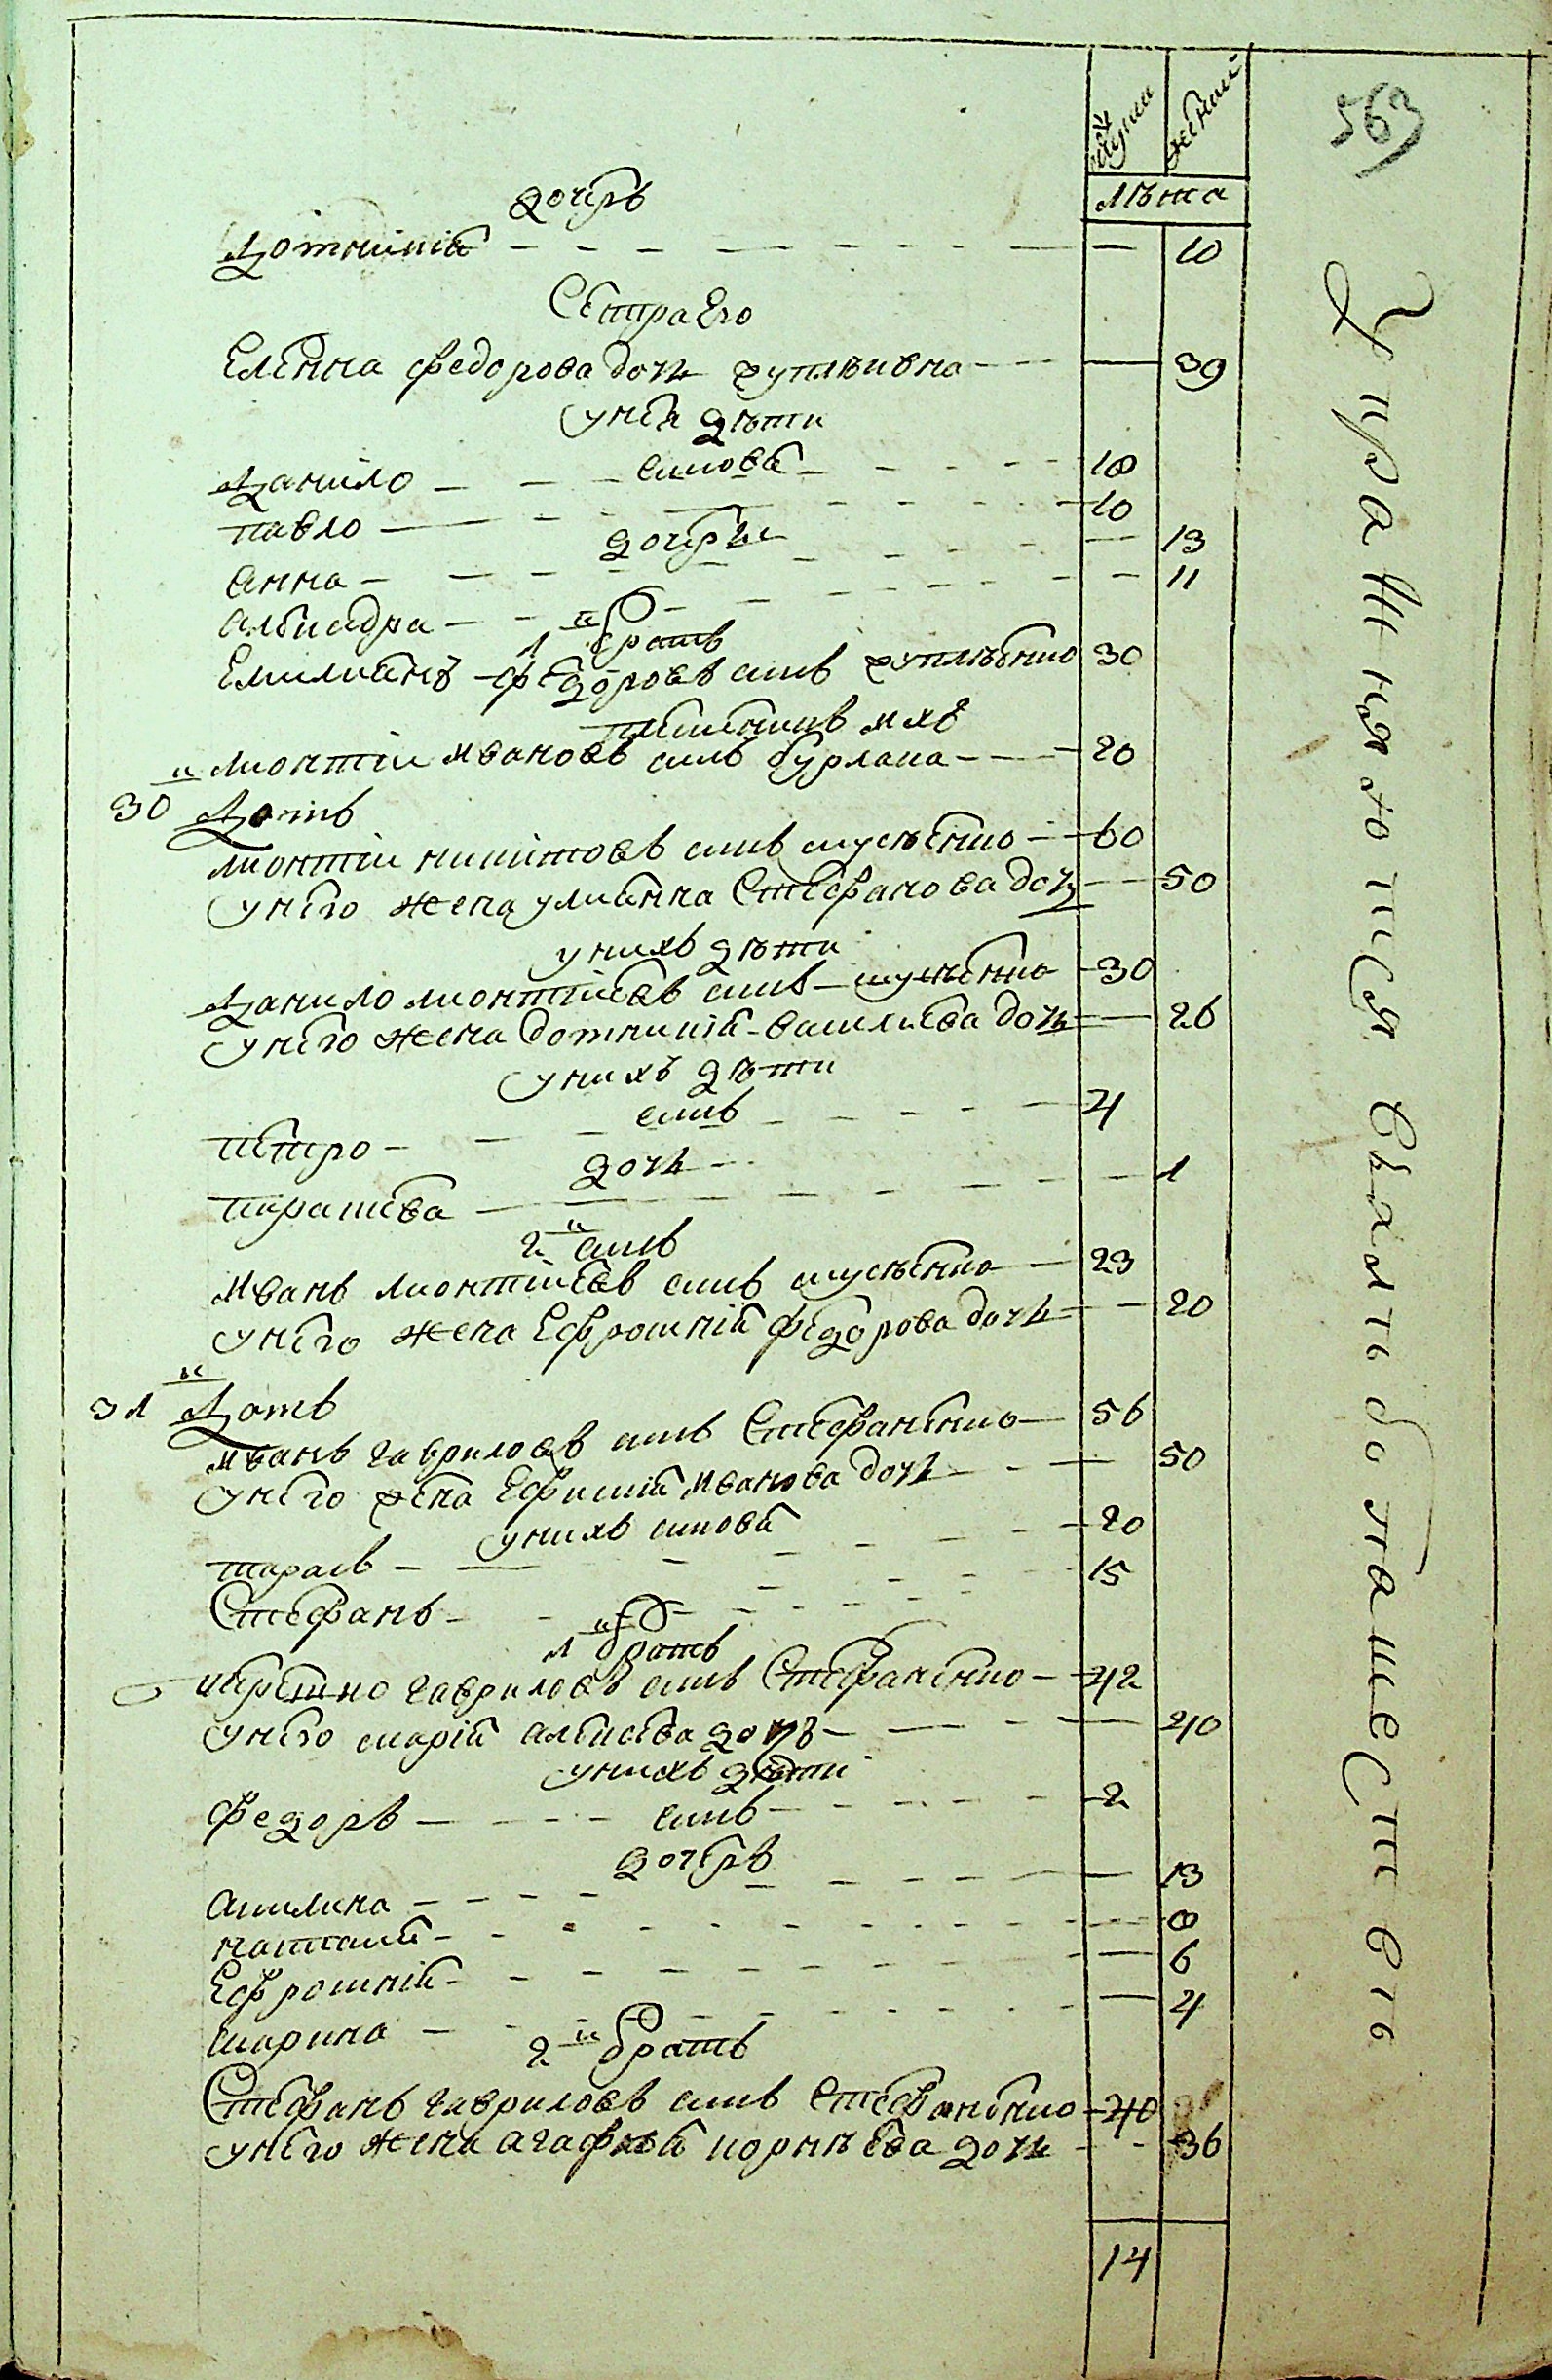 563
мужска женскии
лѣта
дочерь
Домникія — 10
Сестра Его
Еленна федорова дочь хуплѣивна — 39
у неа дѣти
синовя
Данило — 18
павло — 10
дочерьи
Анна — 13
Алексадра — 11
1й братъ
Емилианъ федоровъ синъ хуплѣенко 30
племеникъ ихъ
Лионтіи Ивановъ синъ бурлака — 20
30й Дотъ
Лионтіи никитовъ синъ мусѣенко — 60
у него жена улианна Стефанова дочъ — 50
у нихъ дѣти
Данило лионтіевъ синъ мусѣенко 30
у него жена домникія василиева дочь — 26
у нихъ дѣти
синъ
петро — 4
дочь
параскева — 1
2й синъ
Иванъ лионтіевъ синъ мусѣенко — 23
у него жена Ефросинія федорова дочь — 20
31й Дотъ
Иванъ гавриловъ синъ Стефаненко — 56
у него жена Ефимія Иванова дочь — 50
у нихъ синовя
тарасъ — 20
Стефанъ — 15
1й братъ
гавриловъ синъ Стефаненко — 42
у него марія алексиева дочъ — 40
у нихъ дѣти
синъ
федоръ — 2
дочеръ
Акилина — 13
наталия — 8
Ефросинія — 6
марина — 4
2й братъ
Стефанъ гавриловъ синъ Стефаненко — 40
у него жена агафія корнѣева дочь — 36
14